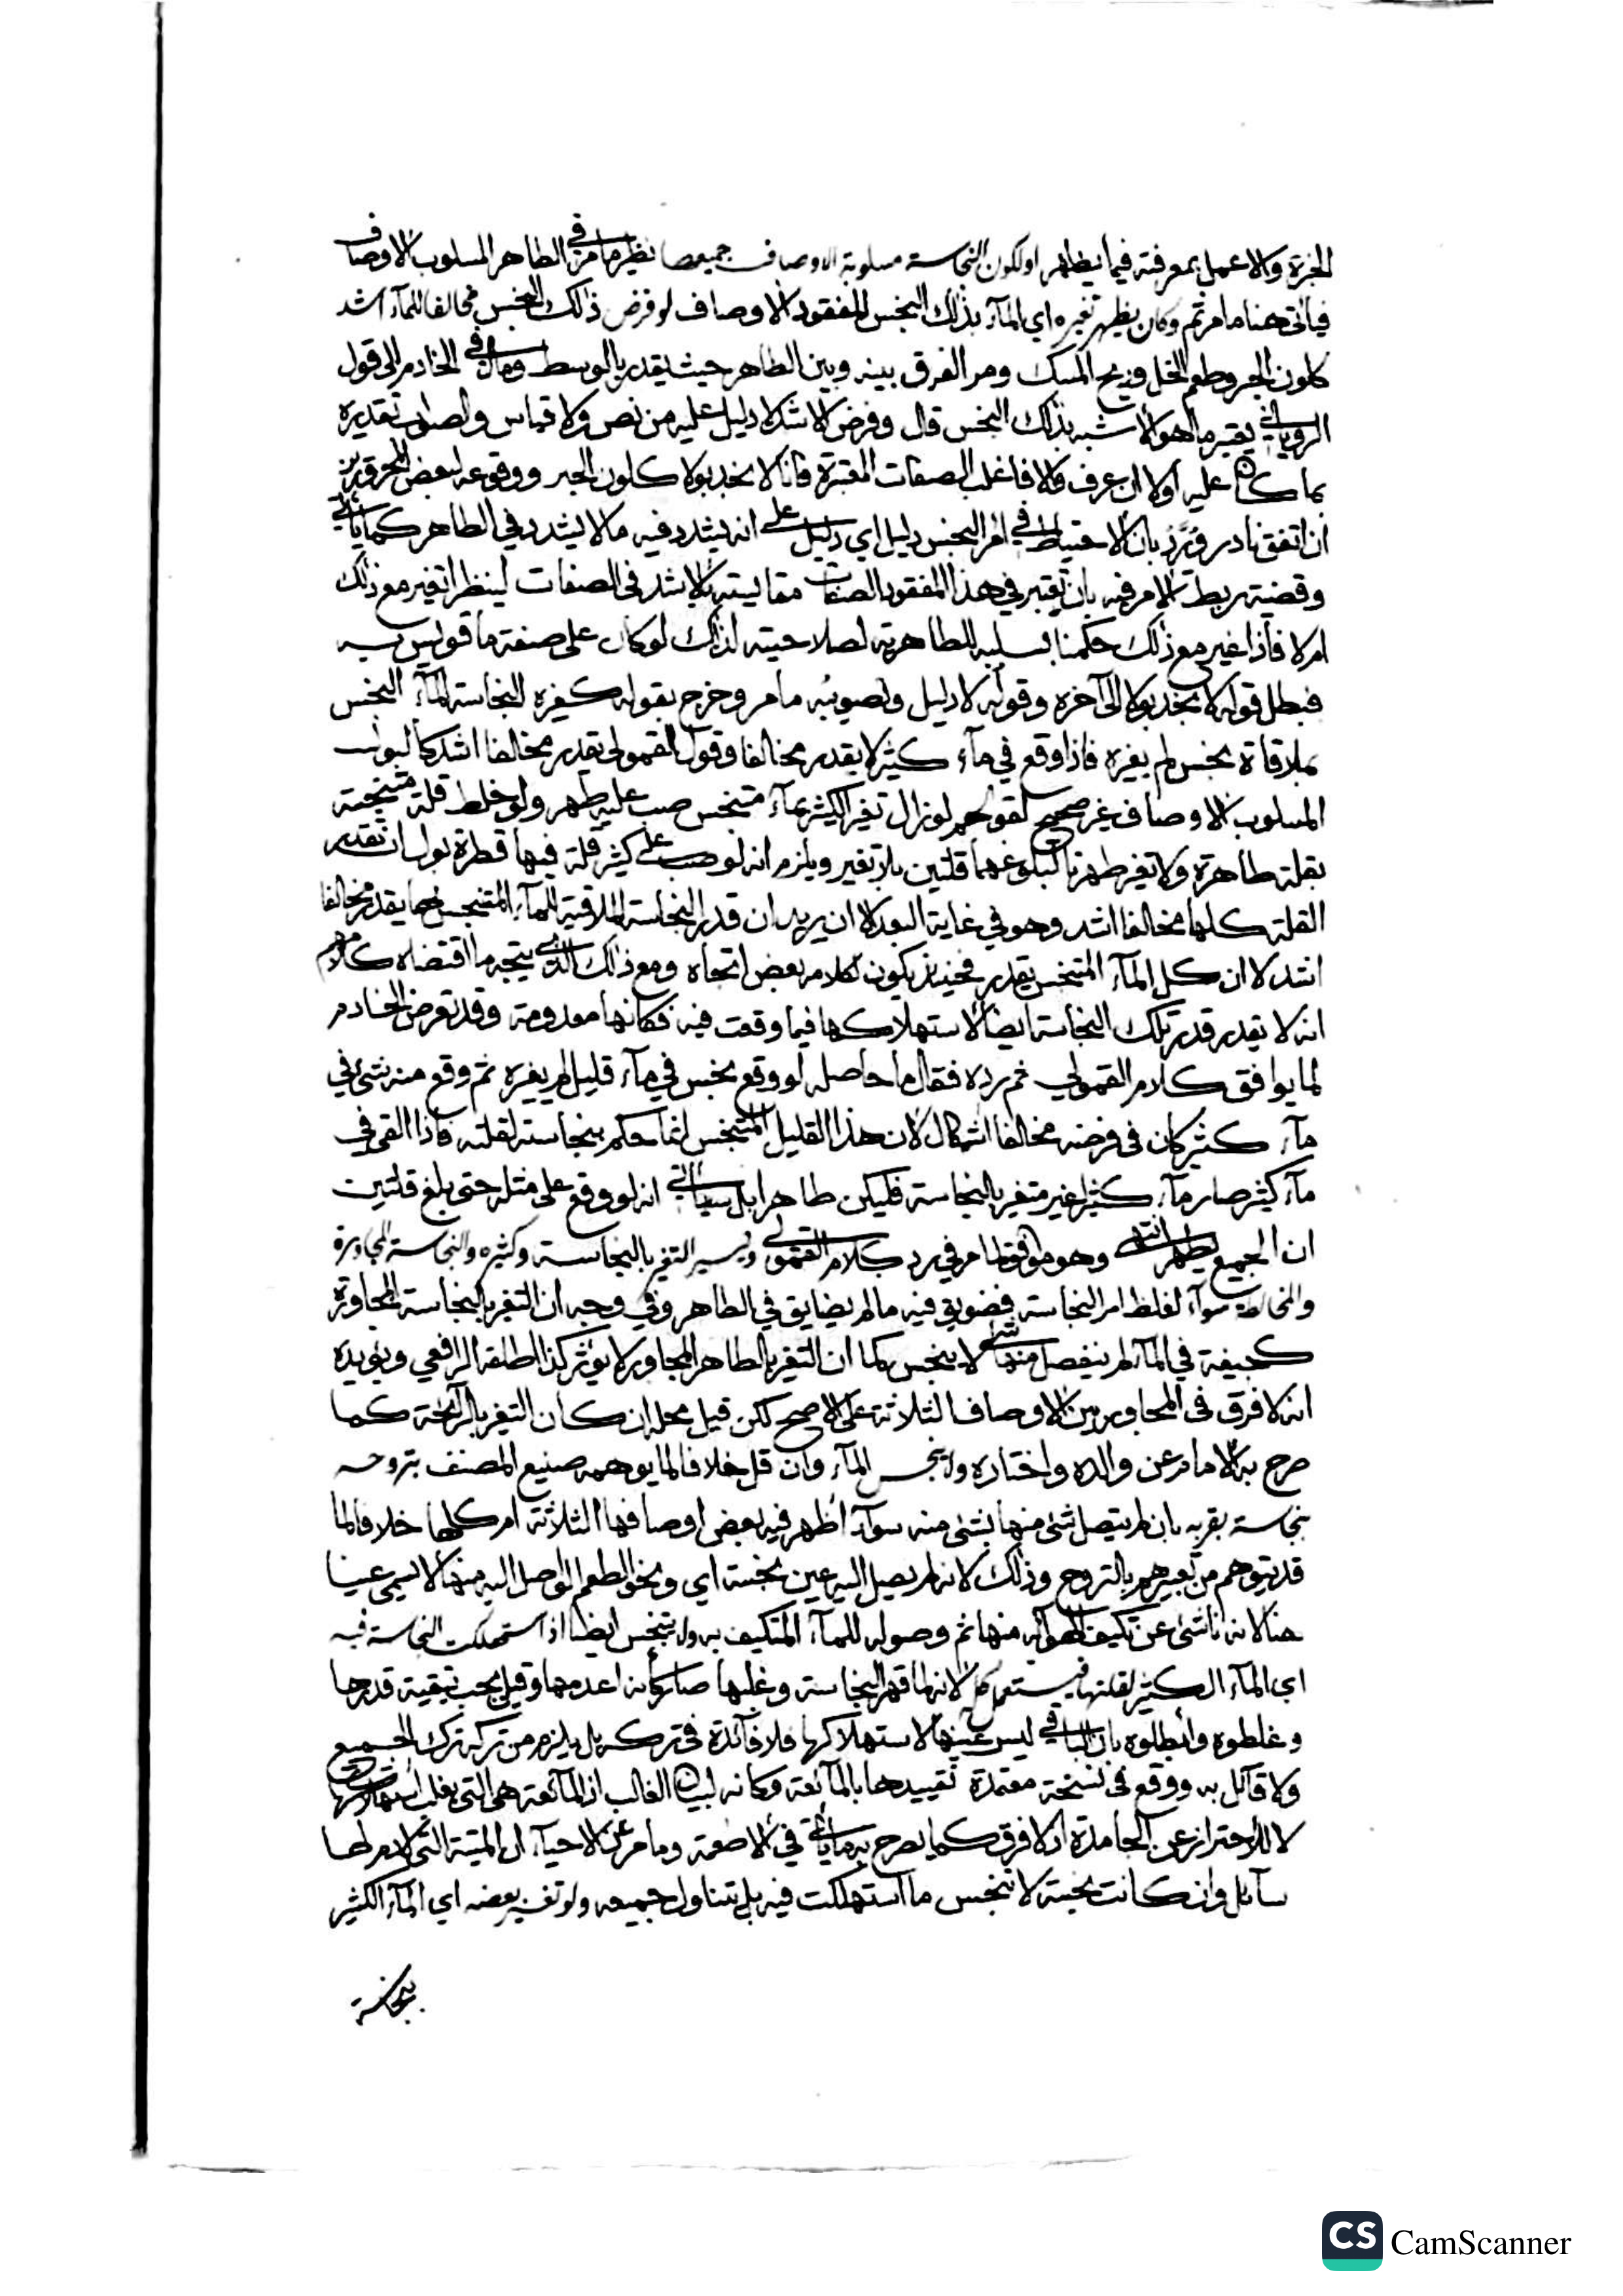 الخبرة والا عمل بمعرفته فيما يظهر او لكون النجاسة مسلوبة الاوصاف جميعها نظير ما مر في الطاهر المسلوب الاوصاف
فياتي هنا ما مر ثم وكان يظهر تغيره اي الماء بذلك النجس المفقود الاوصاف لو فرض ذلك النجس مخالفا للماء اشد
كلون الحبر وطعم الخل وريح المسك ومر الفرق بينه وبين الطاهر حيث يقدر بالوسط ومال في الخادم الى قول
الروياني يعتبر ما هو الاشبه بذلك النجس قال وفرض الاشد لا دليل عليه من نص ولا قياس والصواب تقديره
بما كان عليه اولا ان عرف والا فاغلب الصفات المعتبرة فانا لا نجد بولا كلون الحبر ووقوعه لبعض المحرورين
ان اتفق نادر ويرد بان الاحتياط في امر النجس دليل اي دليل على انه يشدد فيه ما لا يشدد في الطاهر كما ياتي
وقضية ربط الامر فيه بان يعتبر في هذا المفقود الصفات مقايسته بالاشد في الصفات لينظر اتغير مع ذلك
ام لا فاذا غير مع ذلك حكمنا بسلبه للطاهرية لصلاحيته لذلك لو كان على صفة ما قويس به
فبطل قوله لا نجد بولا الى آخره وقوله لا دليل وتصويبه ما مر وخرج بقوله كغيره النجاسة الماء النجس
بملاقاة نجس لم يغيره فاذا وقع في ماء كثير لا يقدر مخالفا وقول القمولي يقدر مخالفا اشد كالبول
المسلوب الاوصاف غير صحيح لقولهم لو زال تغير الكثير بماء متنجس صب عليه طهر ولو خلط قلة متنجسة
بقلة طاهرة ولا تغير طهرتا لبلوغهما قلتين بلا تغير ويلزم انه لو صب على كثير قلة فيها قطرة بول ان تقدير
القلة كلها مخالفا اشد وهو في غاية البعد الا ان يريد ان قدر النجاسة الملاقية للماء المتنجس بها يقدر مخالفا
اشد لا ان كل الماء المتنجس يقدر فحينئذ يكون لكلامه بعض اتجاه ومع ذلك الذي يتجه ما اقتضاه كلامهم
انه لا يقدر قدر تلك النجاسة ايضا لاستهلاكها فيما وقعت فيه فكانها معدومة وقد تعرض الخادم
لما يوافق كلام القمولي ثم رده فقال ما حاصله لو وقع نجس في ماء قليل لم يغيره ثم وقع منه شئ في
ماء كثير كان في فرضه مخالفا اشكال لان هذا القليل المتنجس انما حكم بنجاسته لقلته فاذا القي في
ماء كثير صار ماء كثيرا غير متغير بالنجاسة فليكن طاهرا بل سياتي انه لو وقع على مثله حتى بلغ قلتين
ان الجميع يطهر انتهى وهو موافق لما مر في رد كلام القمولي ويسير التغير بالنجاسة وكثيره والنجاسة المجاورة
والمخالطة سواء لغلظ امر النجاسة فضويق فيه ما لم يضايق في الطاهر وفي وجه ان التغير بالنجاسة المجاورة
كجيفة في الماء لم ينفصل منها شئ لا ينجس كما ان التغير بالطاهر المجاور لا يؤثر كذا اطلقه الرافعي ويؤيده
انه لا فرق في المجاور بين الاوصاف الثلاثة على الاصح لكن قيل محله ان كان التغير بالرائحة كما
صرح به الامام عن والده واختاره ولا ينجس الماء وان قل خلافا لما يوهمه صنيع المصنف بتروحه
بنجاسة بقربه بان لم يتصل شئ منها بشئ منه سواء اظهر فيه بعض اوصافها الثلاثة ام كلها خلافا لما
قد يتوهم من تعبيرهم بالتروح وذلك لانه لم يصل اليه عين نجسة اي ونحو الطعم الواصل اليه منها لا يسمى عينا
هنا لانه ناشئ عن تكيف الهواء منها ثم وصوله للماء المتكيف به ولا يتنجس ايضا اذا استهلكت النجاسة فيه
اي الماء الكثير لقلتها فيستعمل كله لانه لما قهر النجاسة وغلبها صار كأنه اعدمها وقيل يجب تبقية قدرها
وغلطوه وابطلوه بان الباقي ليس عينها لاستهلاكها فلا فائدة في تركه بل يلزم من تركه ترك الجميع
ولا قائل به ووقع في نسخة معتمدة تقييدها بالمائعة وكانه لبيان الغالب اذ المائعة هي التي يغلب استهلاكها
لا للاحتراز عن الجامدة اذ لا فرق كما يصرح به ما ياتي في الاطعمة وما مر عن الاحياء ان الميتة التي لا دم لها
سائل وان كانت نجسة لا تنجس ما استهلكت فيه بل يتناول جميعه ولو تغير بعضه اي الماء الكثير
بنجاسة
CS CamScanner